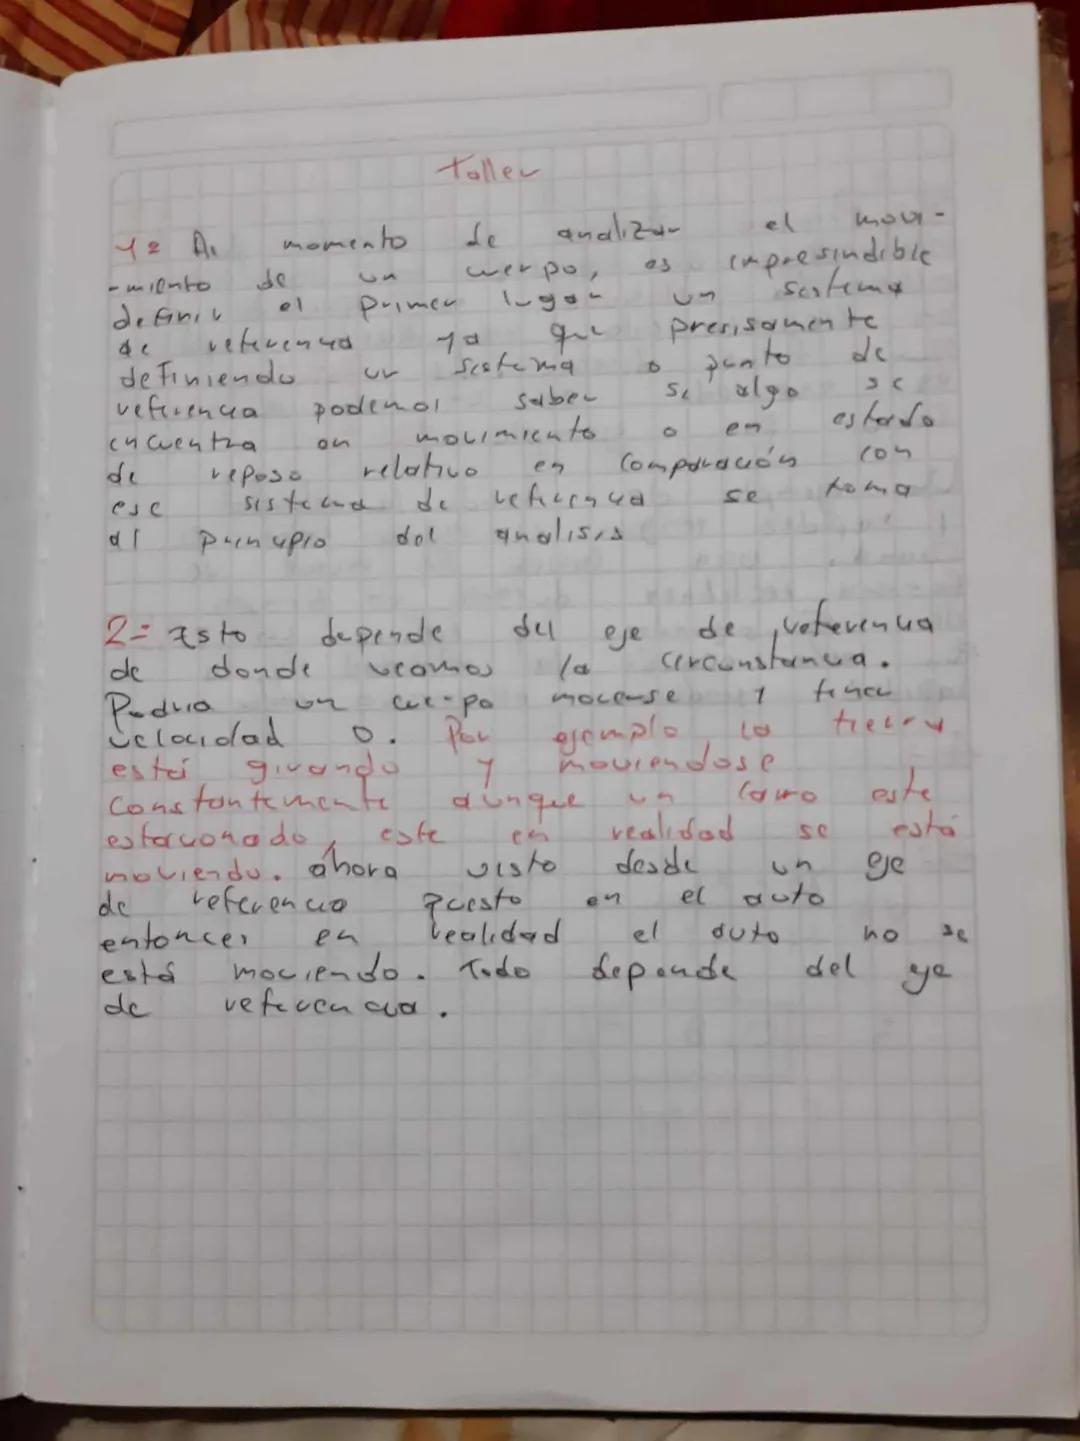 Taller
1= Al momento de analizar el movi-
-miento de un cuerpo, es impresindible
definir el primer lugar un sistema
de referencia ya que presisamente
definiendo un sistema o punto de
referencia podemos saber si algo se
encuentra en movimiento o en estado
de reposo relativo en comparación con
ese sistema de referencia se toma
al principio del analisis
2= Esto depende del eje de referencia
de donde veamos la circunstancia.
Podria un cuerpo moverse y tener
velocidad 0. Por ejemplo la tierra
está girando y moviendose
constantemente aunque un carro este
estacionado, este en realidad se está
moviendo. ahora visto desde un eje
de referencia puesto en el auto
entonces en realidad el auto no se
está moviendo. Todo depende del eje
de referencia.